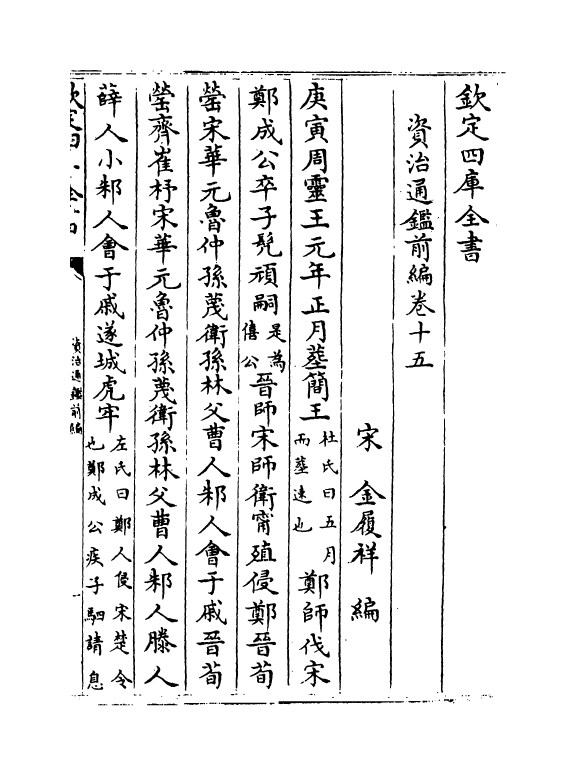 欽定四庫全書
資治通鑑前編卷十五
宋 金履祥 編
庚寅周靈王元年正月葬簡王杜氏曰五月而葬速也鄭師伐宋
鄭成公卒子髡頑嗣是為僖公晉師宋師衛甯殖侵鄭晉荀
罃宋華元魯仲孫蔑衛孫林父曹人邾人會于戚晉荀
罃齊崔杼宋華元魯仲孫蔑衛孫林父曹人邾人滕人
薛人小邾人會于戚遂城虎牢左氏曰鄭人侵宋楚令也鄭成公疾子駟請息
資治通鑑前編
一